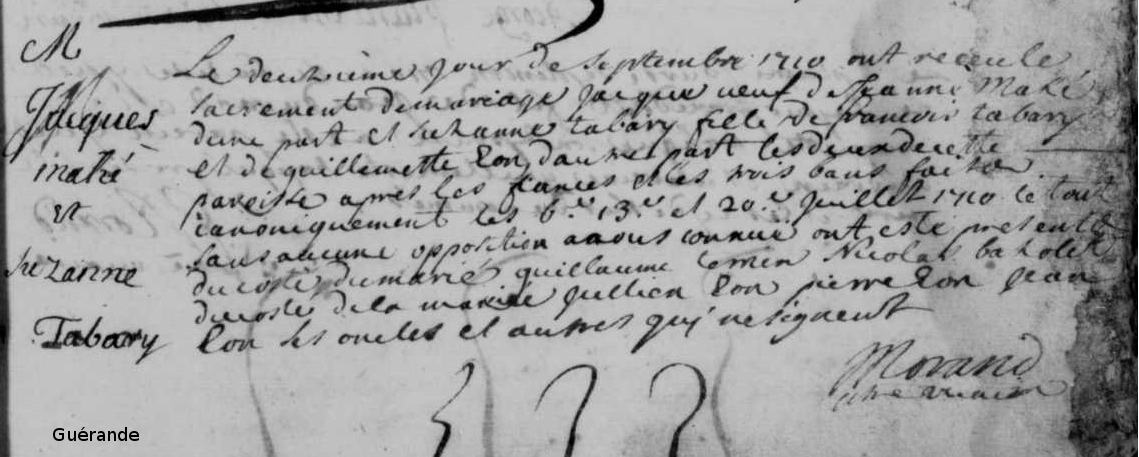 M
Jacques
mahé
et
suzanne
Tabary
Le deuxieme jour de septembre 1710 ont receu le
sacrement de mariage jacque veuf de Jeanne Mahé
dune part et suzanne tabary fille de francois tabary
et de guillemette Eon dautre part les deux de cette
paroisse apres les fiances et les trois bans faits
canoniquement les 6.e 13.e et 20.e juillet 1710 le tout
sans aucune opposition a nous connue ont esté presents
du costé du marié guillaume Nicolas baholet
du costé de la mariée jullien Eon pierre Eon jean
Eon ses oncles et autres qui ne signent
Morand
vicaire
Guérande